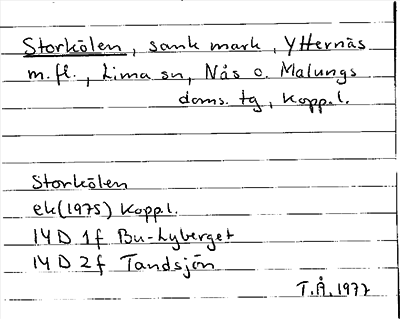 Storkölen, sank mark, Ytternäs
m. fl., Lima sn, Nås o. Malungs
doms. tg, Kopp. l.
Storkölen
ek (1975) Koppl.
14 D 1f Bu-Lyberget
14 D 2f Tandsjön
T.Å. 1977